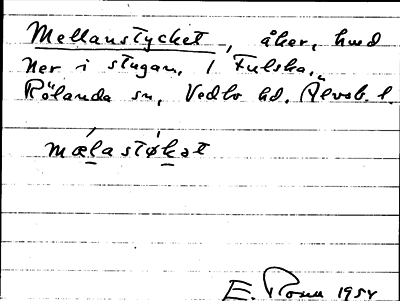 Mellanstycket, åker, hwd
Ner i stugan, i Fulska,
Rölanda sn, Vedbo hd. Älvsb. l.
mælastøkət
E. 1958